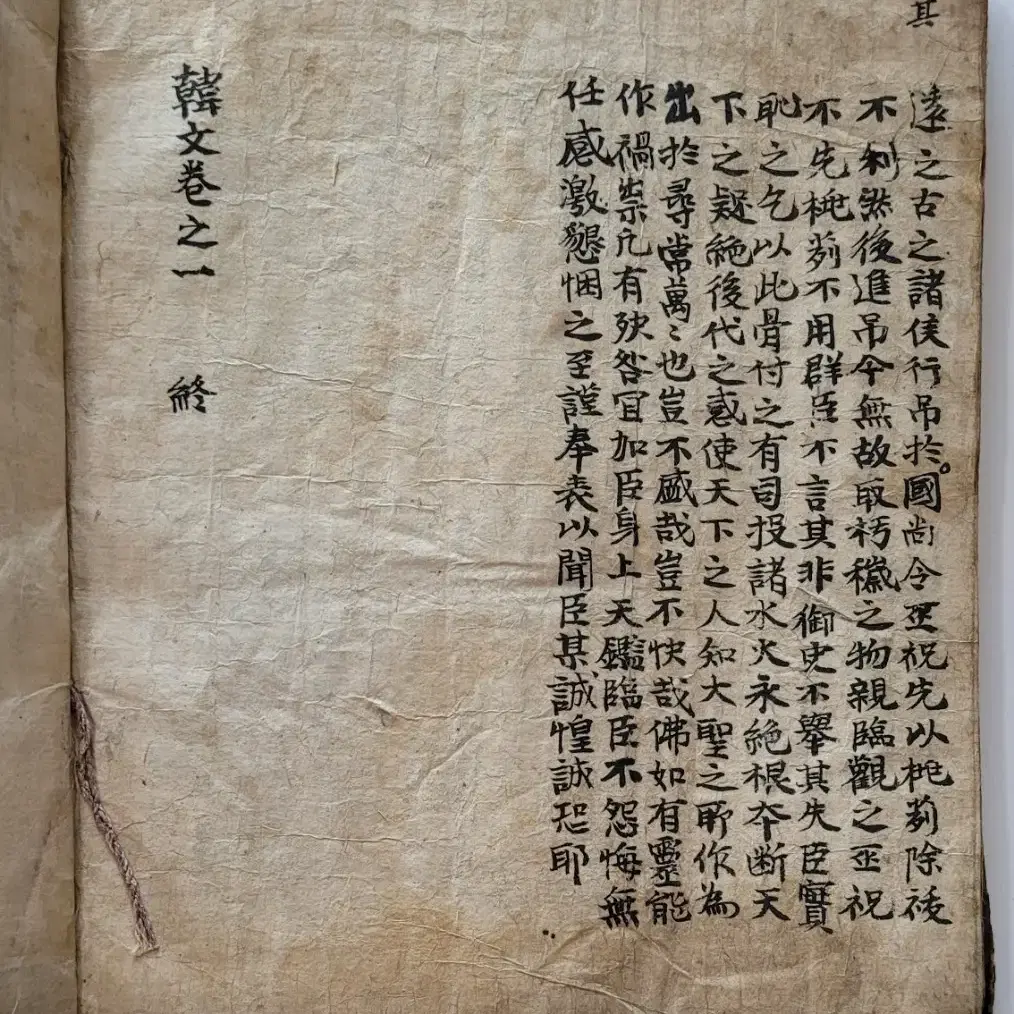 其
遠之古之諸侯行吊於國尚令巫祝先以桃茢除祓
不利然後進吊今無故取朽穢之物親臨觀之巫祝
不先桃茢不用群臣不言其非御史不舉其失臣實
耻之乞以此骨付之有司投諸水火永絶根本断天
下之疑絶後代之惑使天下之人知大聖之所作為
出於尋常萬〻也豈不盛哉豈不快哉佛如有靈能
作禍祟凡有殃咎宜加臣身上天鑑臨臣不怨悔無
任感激懇悃之至謹奉表以聞臣某誠惶誠恐耶
韓文卷之一 終